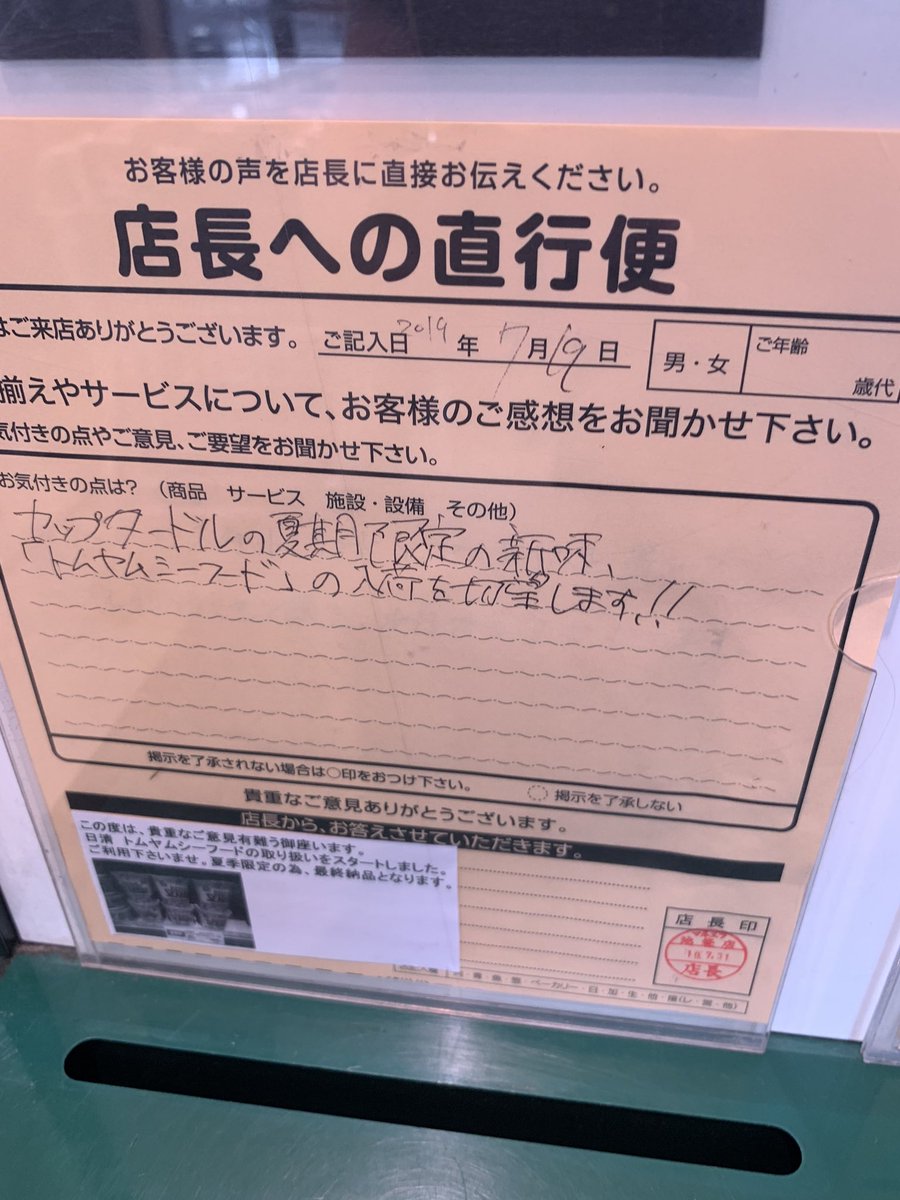 お客様の声を店長に直接お伝えください。
店長への直行便
はご来店ありがとうございます。 ご記入日 2019 年 7 月 19 日 男・女 ご年齢 歳代
揃えやサービスについて、お客様のご感想をお聞かせ下さい。
気付きの点やご意見、ご要望をお聞かせ下さい。
お気付きの点は? (商品 サービス 施設・設備 その他)
カップヌードルの夏期限定の新味、
「トムヤムシーフード」の入荷を切望します!!
掲示を了承されない場合は○印をおつけ下さい。 掲示を了承しない
貴重なご意見ありがとうございます。
店長から、お答えさせていただきます。
この度は、貴重なご意見有難う御座います。
日清 トムヤムシーフードの取り扱いをスタートしました。
ご利用下さいませ。夏季限定の為、最終納品となります。
店長印
池袋店
'19.7.31
店長
ベーカリー・日・加・生・他